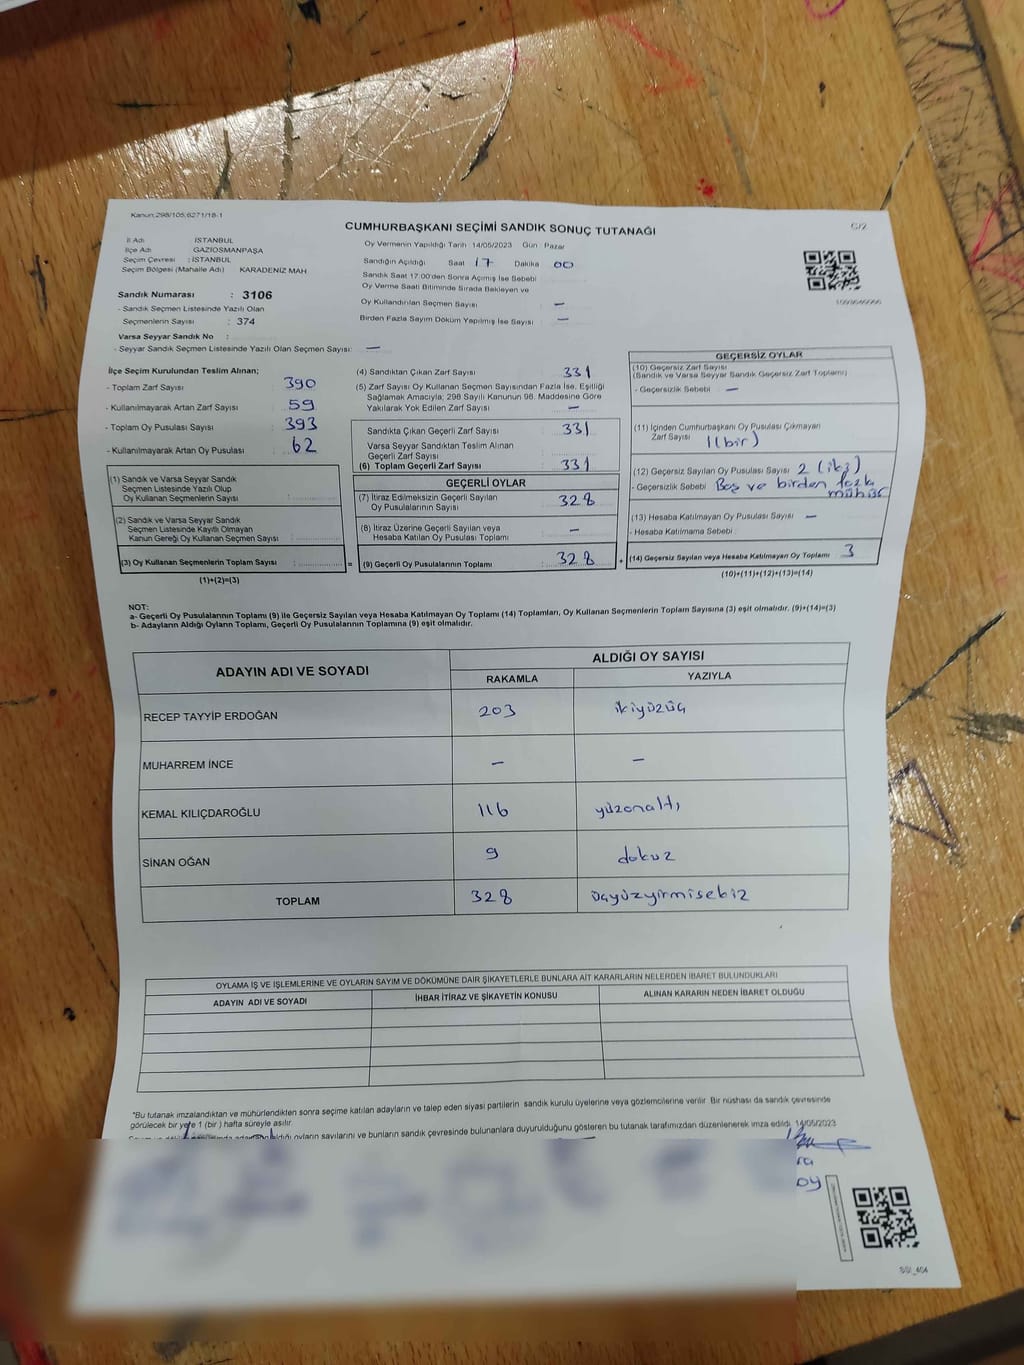 Kanun:298/105,6271/18-1
CUMHURBAŞKANI SEÇİMİ SANDIK SONUÇ TUTANAĞI
C/2
İl Adı İSTANBUL
İlçe Adı GAZİOSMANPAŞA
Seçim Çevresi : İSTANBUL
Seçim Bölgesi (Mahalle Adı) KARADENİZ MAH
Sandık Numarası : 3106
- Sandık Seçmen Listesinde Yazılı Olan
Seçmenlerin Sayısı : 374
Varsa Seyyar Sandık No :
- Seyyar Sandık Seçmen Listesinde Yazılı Olan Seçmen Sayısı: —
Oy Vermenin Yapıldığı Tarih 14/05/2023 Gün : Pazar
Sandığın Açıldığı Saat 17 Dakika 00
Sandık Saat 17:00'den Sonra Açılmış İse Sebebi
Oy Verme Saati Bitiminde Sırada Bekleyen ve
Oy Kullandırılan Seçmen Sayısı —
Birden Fazla Sayım Döküm Yapılmış İse Sayısı —
İlçe Seçim Kurulundan Teslim Alınan;
- Toplam Zarf Sayısı 390
- Kullanılmayarak Artan Zarf Sayısı 59
- Toplam Oy Pusulası Sayısı 393
- Kullanılmayarak Artan Oy Pusulası 62
(1) Sandık ve Varsa Seyyar Sandık
Seçmen Listesinde Yazılı Olup
Oy Kullanan Seçmenlerin Sayısı :
(2) Sandık ve Varsa Seyyar Sandık
Seçmen Listesinde Kayıtlı Olmayan
Kanun Gereği Oy Kullanan Seçmen Sayısı :
(3) Oy Kullanan Seçmenlerin Toplam Sayısı : =
(1)+(2)=(3)
(4) Sandıktan Çıkan Zarf Sayısı 331
(5) Zarf Sayısı Oy Kullanan Seçmen Sayısından Fazla İse, Eşitliği
Sağlamak Amacıyla; 298 Sayılı Kanunun 98. Maddesine Göre
Yakılarak Yok Edilen Zarf Sayısı —
Sandıkta Çıkan Geçerli Zarf Sayısı 331
Varsa Seyyar Sandıktan Teslim Alınan
Geçerli Zarf Sayısı
(6) Toplam Geçerli Zarf Sayısı 331
GEÇERLİ OYLAR
(7) İtiraz Edilmeksizin Geçerli Sayılan
Oy Pusulalarının Sayısı 328
(8) İtiraz Üzerine Geçerli Sayılan veya
Hesaba Katılan Oy Pusulası Toplamı —
(9) Geçerli Oy Pusulalarının Toplamı 328 +
GEÇERSİZ OYLAR
(10) Geçersiz Zarf Sayısı
(Sandık ve Varsa Seyyar Sandık Geçersiz Zarf Toplamı)
- Geçersizlik Sebebi —
(11) İçinden Cumhurbaşkanı Oy Pusulası Çıkmayan
Zarf Sayısı 1(bir)
(12) Geçersiz Sayılan Oy Pusulası Sayısı 2 (iki)
- Geçersizlik Sebebi Boş ve birden fazla
mühür
(13) Hesaba Katılmayan Oy Pusulası Sayısı —
- Hesaba Katılmama Sebebi :
(14) Geçersiz Sayılan veya Hesaba Katılmayan Oy Toplamı 3
(10)+(11)+(12)+(13)=(14)
NOT:
a- Geçerli Oy Pusulalarının Toplamı (9) ile Geçersiz Sayılan veya Hesaba Katılmayan Oy Toplamı (14) Toplamları, Oy Kullanan Seçmenlerin Toplam Sayısına (3) eşit olmalıdır. (9)+(14)=(3)
b- Adayların Aldığı Oyların Toplamı, Geçerli Oy Pusulalarının Toplamına (9) eşit olmalıdır.
ADAYIN ADI VE SOYADI ALDIĞI OY SAYISI
RAKAMLA YAZIYLA
RECEP TAYYİP ERDOĞAN 203 ikiyüzüç
MUHARREM İNCE — —
KEMAL KILIÇDAROĞLU 116 yüzonaltı
SİNAN OĞAN 9 dokuz
TOPLAM 328 üçyüzyirmisekiz
OYLAMA İŞ VE İŞLEMLERİNE VE OYLARIN SAYIM VE DÖKÜMÜNE DAİR ŞİKAYETLERLE BUNLARA AİT KARARLARIN NELERDEN İBARET BULUNDUKLARI
ADAYIN ADI VE SOYADI İHBAR İTİRAZ VE ŞİKAYETİN KONUSU ALINAN KARARIN NEDEN İBARET OLDUĞU
"Bu tutanak imzalandıktan ve mühürlendikten sonra seçime katılan adayların ve talep eden siyasi partilerin sandık kurulu üyelerine veya gözlemcilerine verilir. Bir nüshası da sandık çevresinde
görülecek bir yere 1 (bir ) hafta süreyle asılır.
aldığı oyların sayılarını ve bunların sandık çevresinde bulunanlara duyurulduğunu gösteren bu tutanak tarafımızdan düzenlenerek imza edildi. 14/05/2023
SSI_404